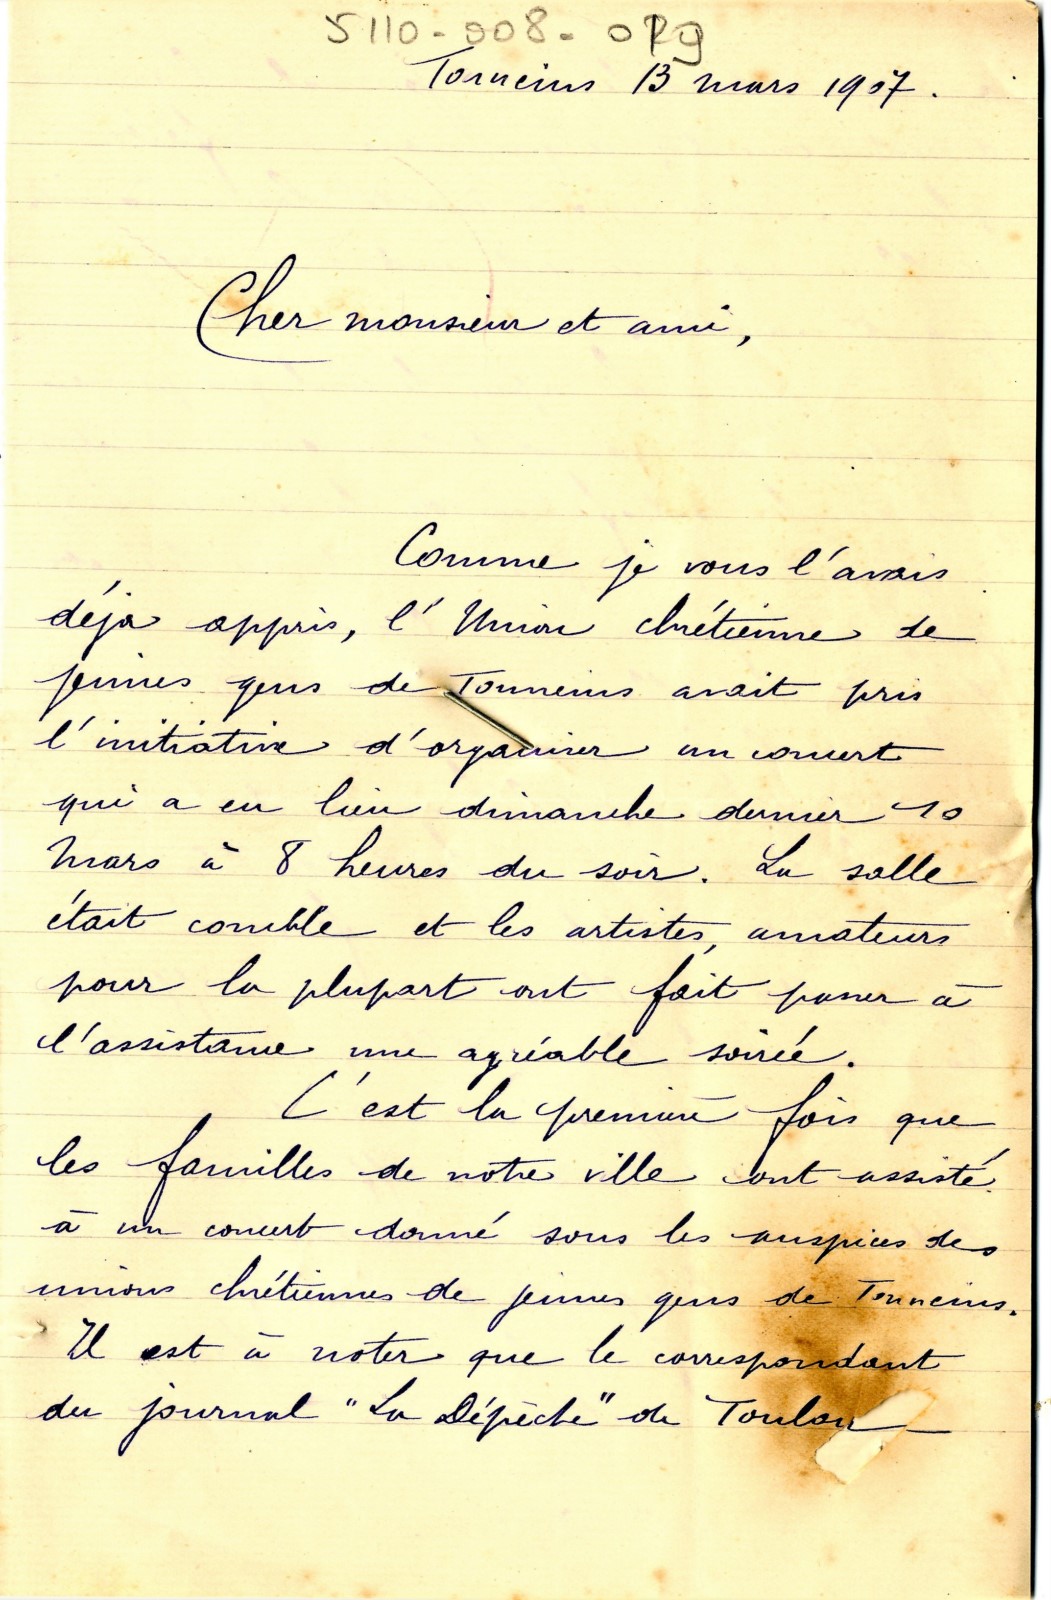 5110-008-org
Tonneins 13 mars 1907.
Cher monsieur et ami,
Comme je vous l'avais
déjà appris, l'Union chrétienne de
jeunes gens de Tonneins avait pris
l'initiative d'organiser un concert
qui a eu lieu dimanche dernier 10
Mars à 8 heures du soir. La salle
était comble et les artistes, amateurs
pour la plupart ont fait passer à
l'assistance une agréable soirée.
C'est la première fois que
les familles de notre ville ont assisté
à un concert donné sous les auspices des
unions chrétiennes de jeunes gens de Tonneins.
Il est à noter que le correspondant
du journal "La Dépèche" de Toulou